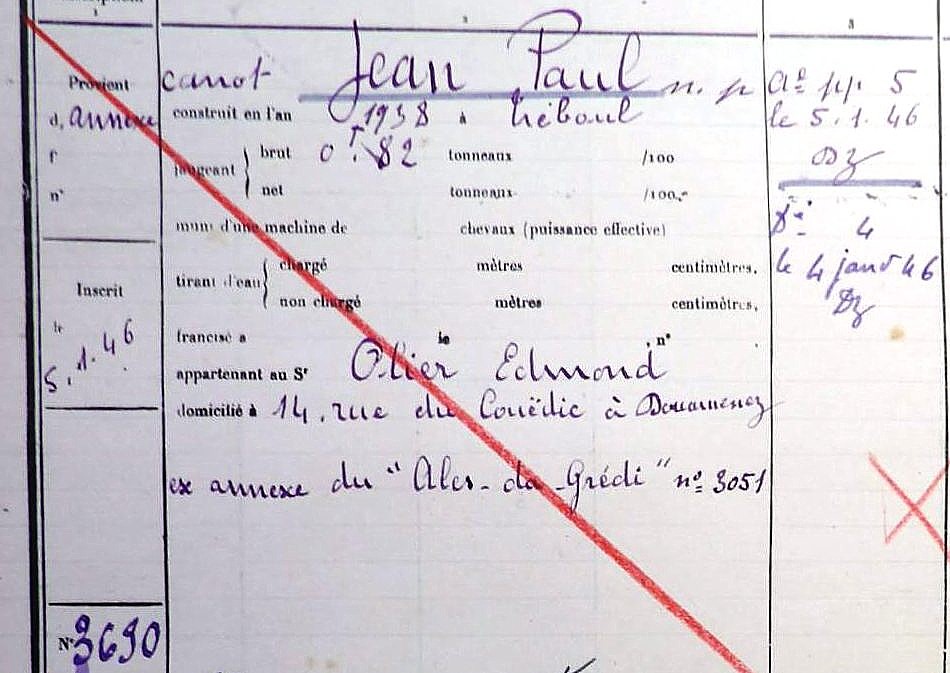 Provient
d, annexe
f
n°
Inscrit
le
5.1.46
N° 3690
canot Jean Paul n. p
construit en l'an 1938 à Tréboul
jaugeant
brut 0T.82 tonneaux /100
net tonneaux /100
muni d'une machine de chevaux (puissance effective)
tirant d'eau
chargé mètres centimètres.
non chargé mètres centimètres.
francisé a le , n°
appartenant au Sr Olier Edmond
domicilié à 14, rue du Couëdic à Douarnenez
ex annexe du "Ales-da-Grédi" n° 3051
5
le 5.1.46
Dz
4
le 4 janv 46
Dz